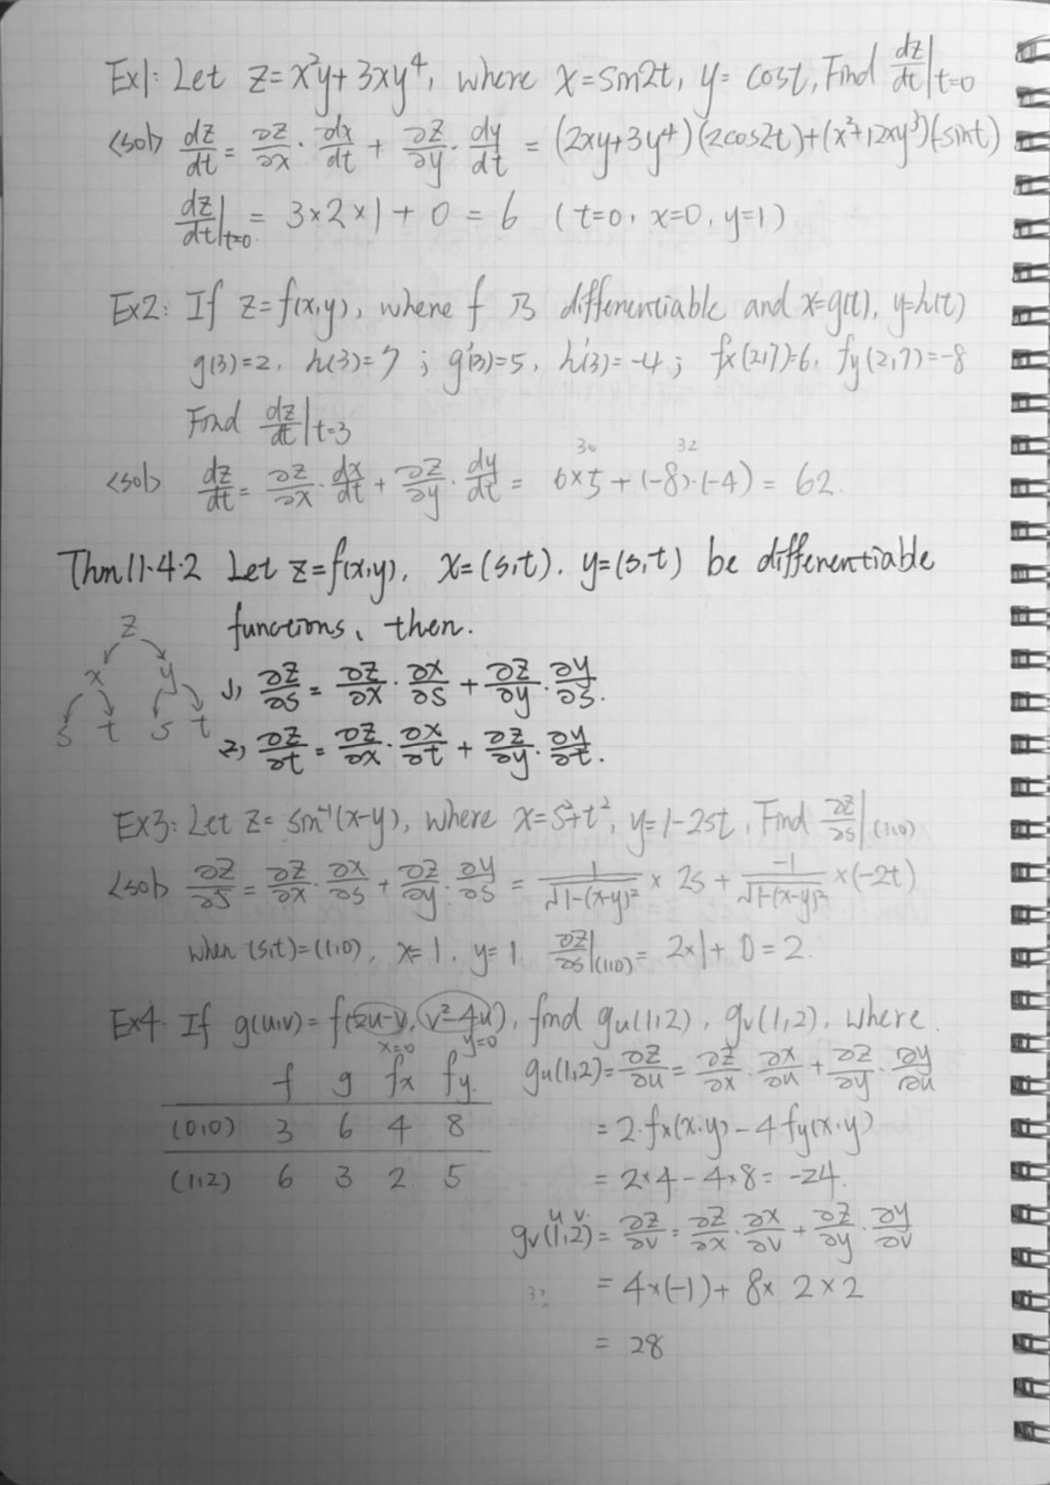 Ex1: Let z=x²y+3xy⁴, where x=sin2t, y=cost, Find dz/dt|t=0
<sol> dz/dt = ∂z/∂x · dx/dt + ∂z/∂y · dy/dt = (2xy+3y⁴)(2cos2t)+(x²+12xy³)(-sint)
dz/dt|t=0 = 3×2×1+0=6 (t=0, x=0, y=1)
Ex2: If z=f(x,y), where f is differentiable and x=g(t), y=h(t)
g(3)=2, h(3)=7; g'(3)=5, h'(3)=-4; fx(2,7)=6, fy(2,7)=-8
Find dz/dt|t=3
30 32
<sol> dz/dt = ∂z/∂x · dx/dt + ∂z/∂y · dy/dt = 6×5+(-8)·(-4) = 62.
Thm 11.4.2 Let z=f(x,y), x=(s,t), y=(s,t) be differentiable
functions, then.
z
x y
s t s t
1) ∂z/∂s = ∂z/∂x · ∂x/∂s + ∂z/∂y · ∂y/∂s.
2) ∂z/∂t = ∂z/∂x · ∂x/∂t + ∂z/∂y · ∂y/∂t.
Ex3: Let z=sin⁻¹(x-y), where x=s²+t², y=1-2st, Find ∂z/∂s|(1,0)
<sol> ∂z/∂s = ∂z/∂x · ∂x/∂s + ∂z/∂y · ∂y/∂s = 1/√1-(x-y)² × 2s + -1/√1-(x-y)² ×(-2t)
when (s,t)=(1,0), x=1, y=1 ∂z/∂s|(1,0) = 2×1+0=2.
Ex4: If g(u,v)=f(2u-v, v²-4u), find gu(1,2), gv(1,2), where.
x=0 y=0
f g fx fy.
(0,0) 3 6 4 8
(1,2) 6 3 2 5
gu(1,2)= ∂z/∂u = ∂z/∂x · ∂x/∂u + ∂z/∂y · ∂y/∂u
=2·fx(x,y)-4fy(x,y)
=2×4-4×8=-24.
u v
gv(1,2)= ∂z/∂v = ∂z/∂x · ∂x/∂v + ∂z/∂y · ∂y/∂v
=4×(-1)+8×2×2
=28